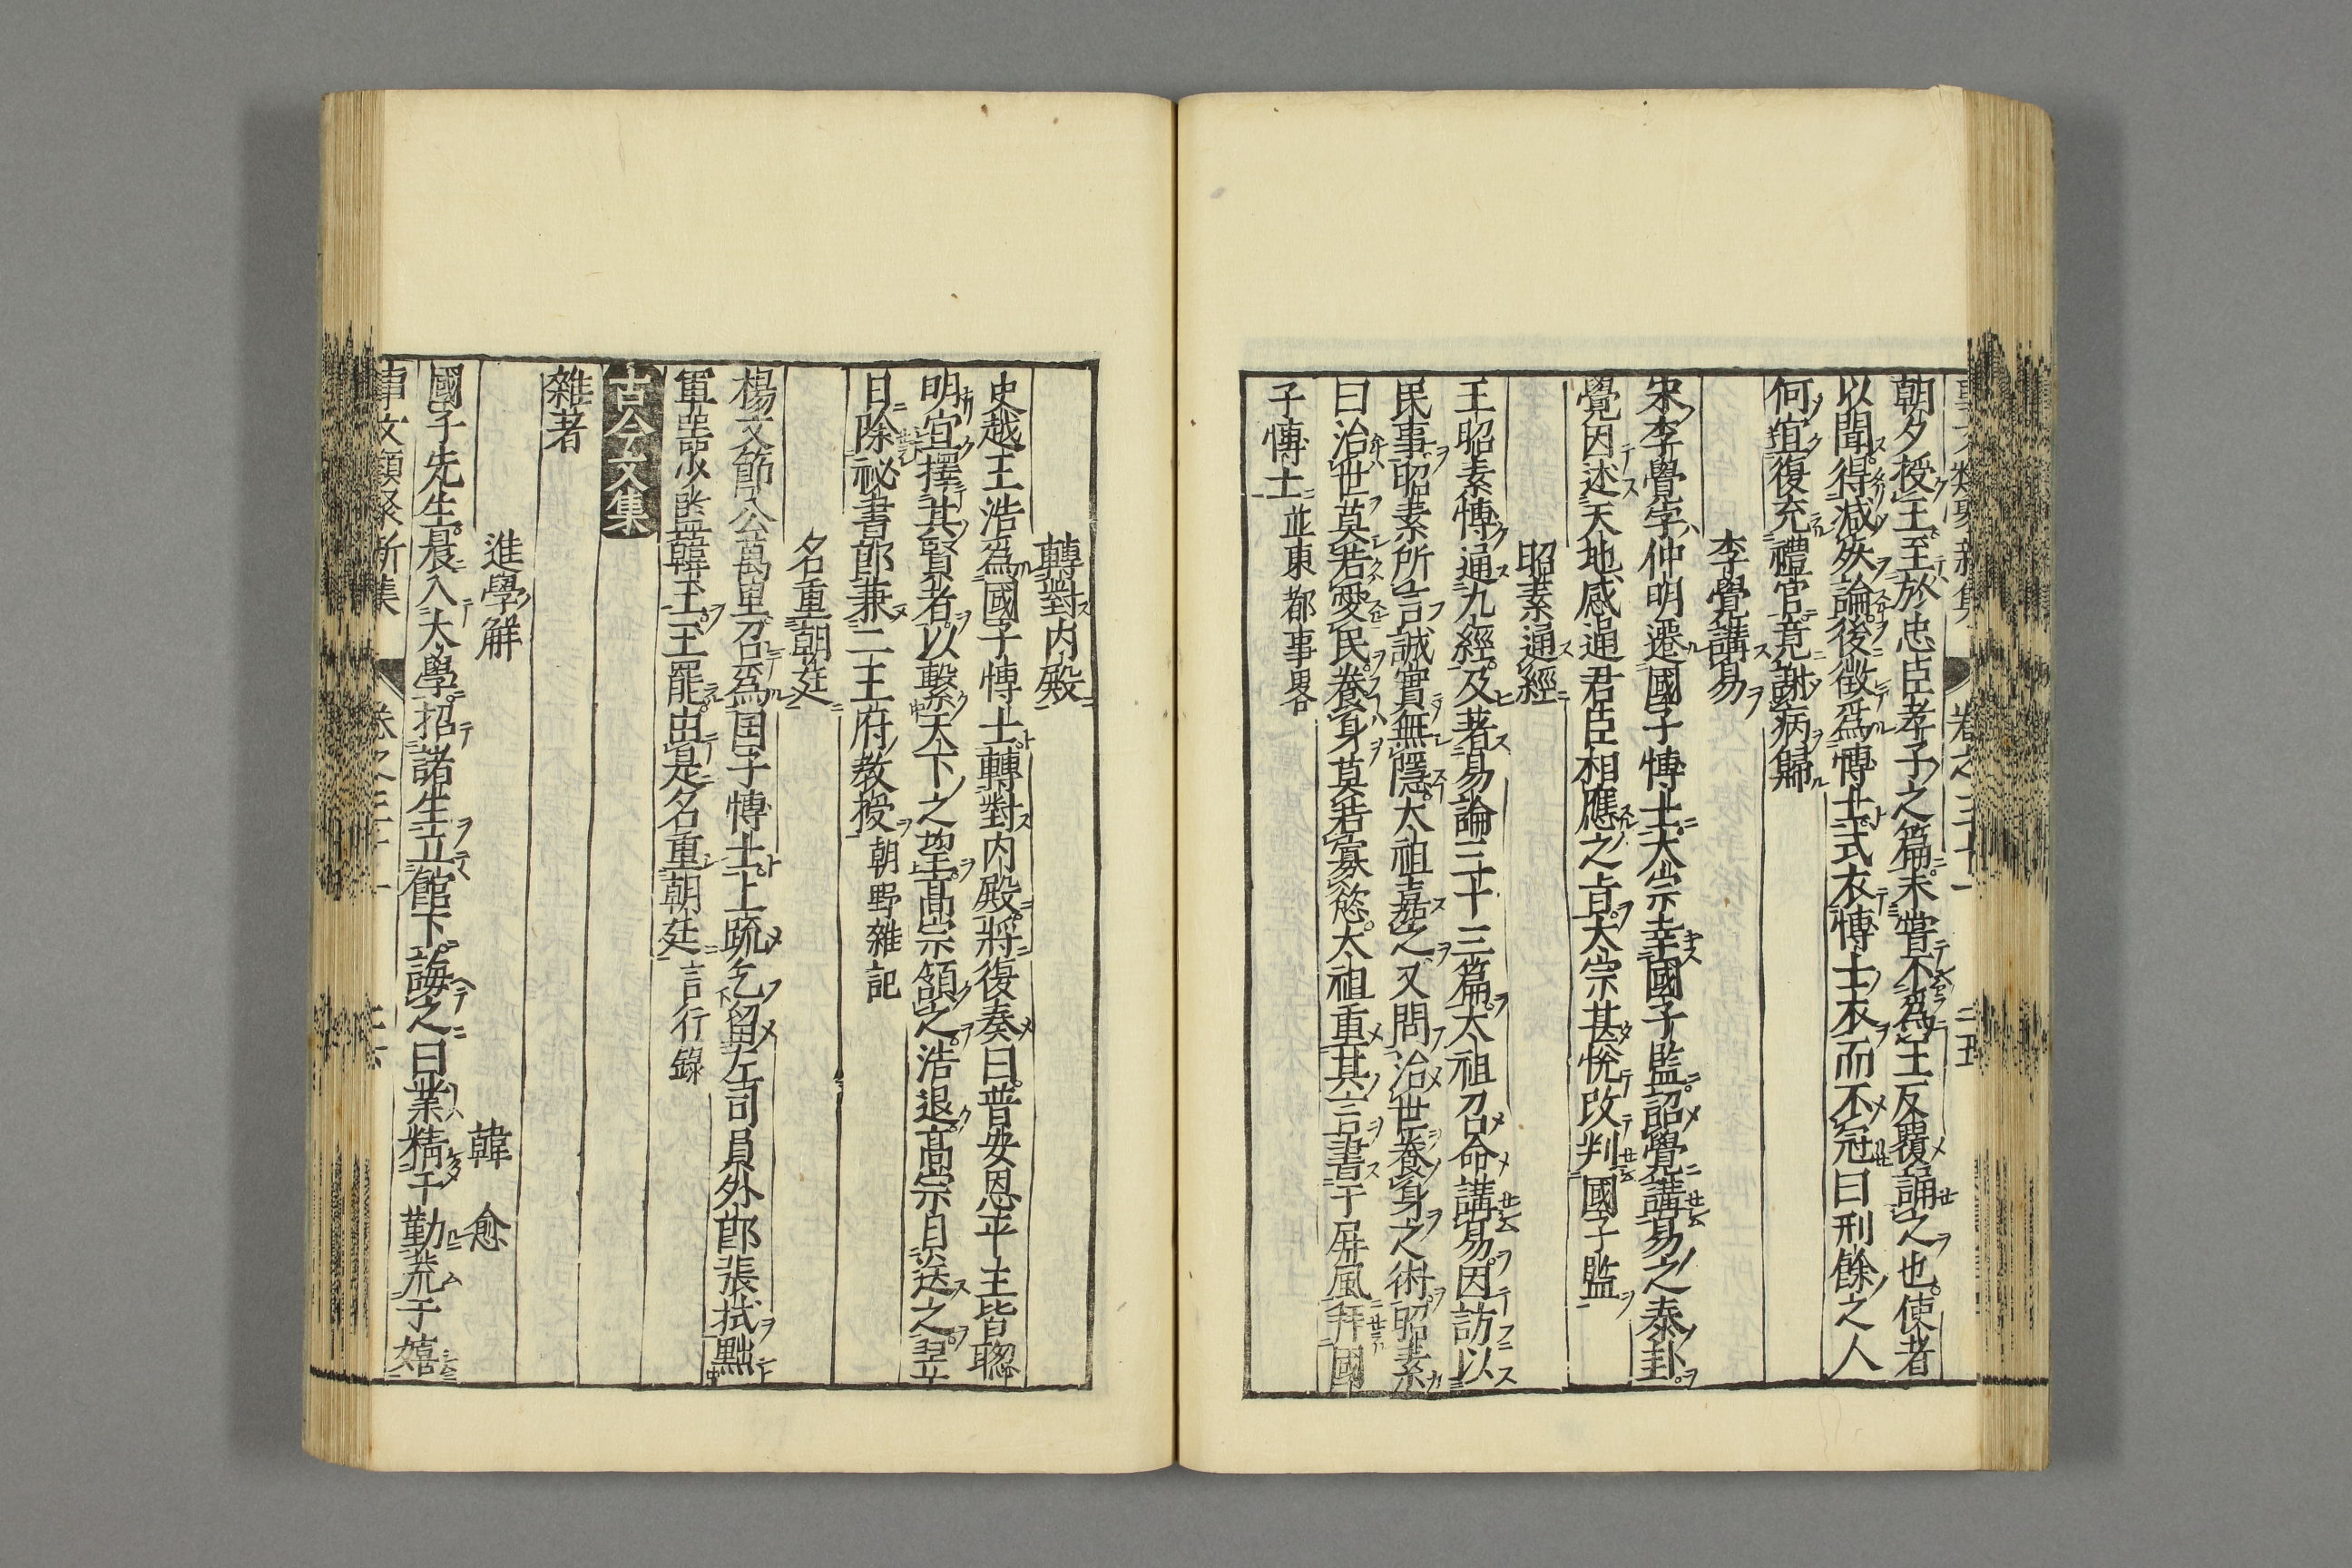 朝夕授王至於忠臣孝子之篇未嘗不爲王反覆誦之也使者
以聞得減死論後徵爲博士式衣博士衣而不冠曰刑餘之人
何宜復充禮官竟謝病歸
李覺講易
宋李覺字仲明遷國子博士太宗幸國子監詔覺講易之泰卦
覺因述天地感通君臣相應之旨太宗甚悅改判國子監
昭素通經
王昭素博通九經及著易論三十三篇太祖召命講易因訪以
民事昭素所言誠實無隱太祖嘉之又問治世養身之術昭素
曰治世莫若愛民養身莫若寡慾太祖重其言書于屏風拜國
子博士並東都事畧
轉對内殿
史越王浩爲國子博士轉對内殿將復奏曰普安恩平主皆聰
明宜擇其賢者以繫天下之望高宗頷之浩退高宗目送之翌
日除祕書郎兼二王府教授朝野雜記
名重朝廷
楊文節公萬里召爲国子博士上疏乞留左司員外郎張拭黜
軍器少監韓玉玉罷由是名重朝廷言行錄
古今文集
雜著
進學解 韓愈
國子先生晨入太學招諸生立館下誨之曰業精于勤荒于嬉
事文類聚新集 卷之三十一